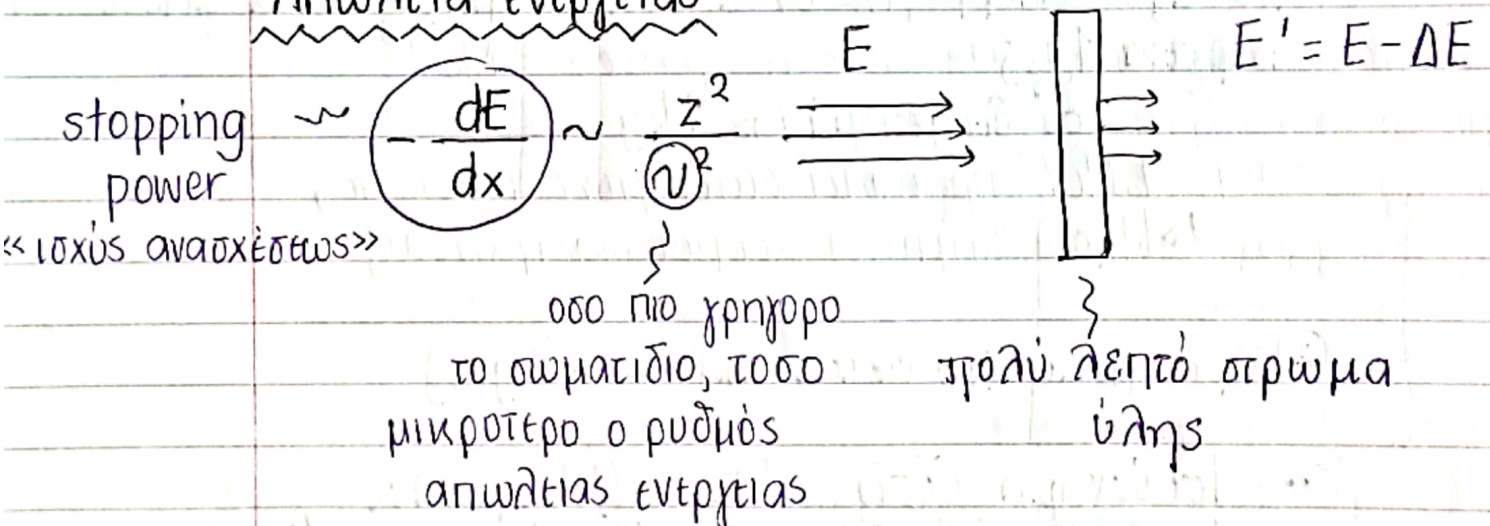 Απώλεια ενέργειας
E
E' = E - ΔE
stopping ~ - dE/dx ~ z²/v²
power
«ισχύς ανασχέσεως»
οσο πιο γρηγορο
το σωματιδιο, τοσο
μικροτερο ο ρυθμός
απωλειας ενεργειας
πολύ λεπτό στρωμα
ύλης